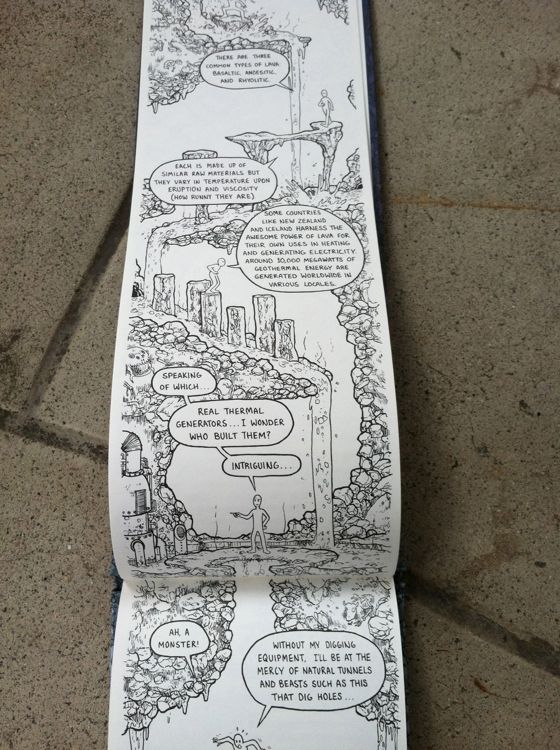 THERE ARE THREE
COMMON TYPES OF LAVA
BASALTIC, ANDESITIC,
AND RHYOLITIC.
EACH IS MADE UP OF
SIMILAR RAW MATERIALS BUT
THEY VARY IN TEMPERATURE UPON
ERUPTION AND VISCOSITY
(HOW RUNNY THEY ARE)
SOME COUNTRIES
LIKE NEW ZEALAND
AND ICELAND HARNESS THE
AWESOME POWER OF LAVA FOR
THEIR OWN USES IN HEATING
AND GENERATING ELECTRICITY.
AROUND 10,000 MEGAWATTS OF
GEOTHERMAL ENERGY ARE
GENERATED WORLDWIDE IN
VARIOUS LOCALES.
SPEAKING
OF WHICH...
REAL THERMAL
GENERATORS...I WONDER
WHO BUILT THEM?
INTRIGUING...
AH, A
MONSTER!
WITHOUT MY DIGGING
EQUIPMENT, I'LL BE AT THE
MERCY OF NATURAL TUNNELS
AND BEASTS SUCH AS THIS
THAT DIG HOLES...